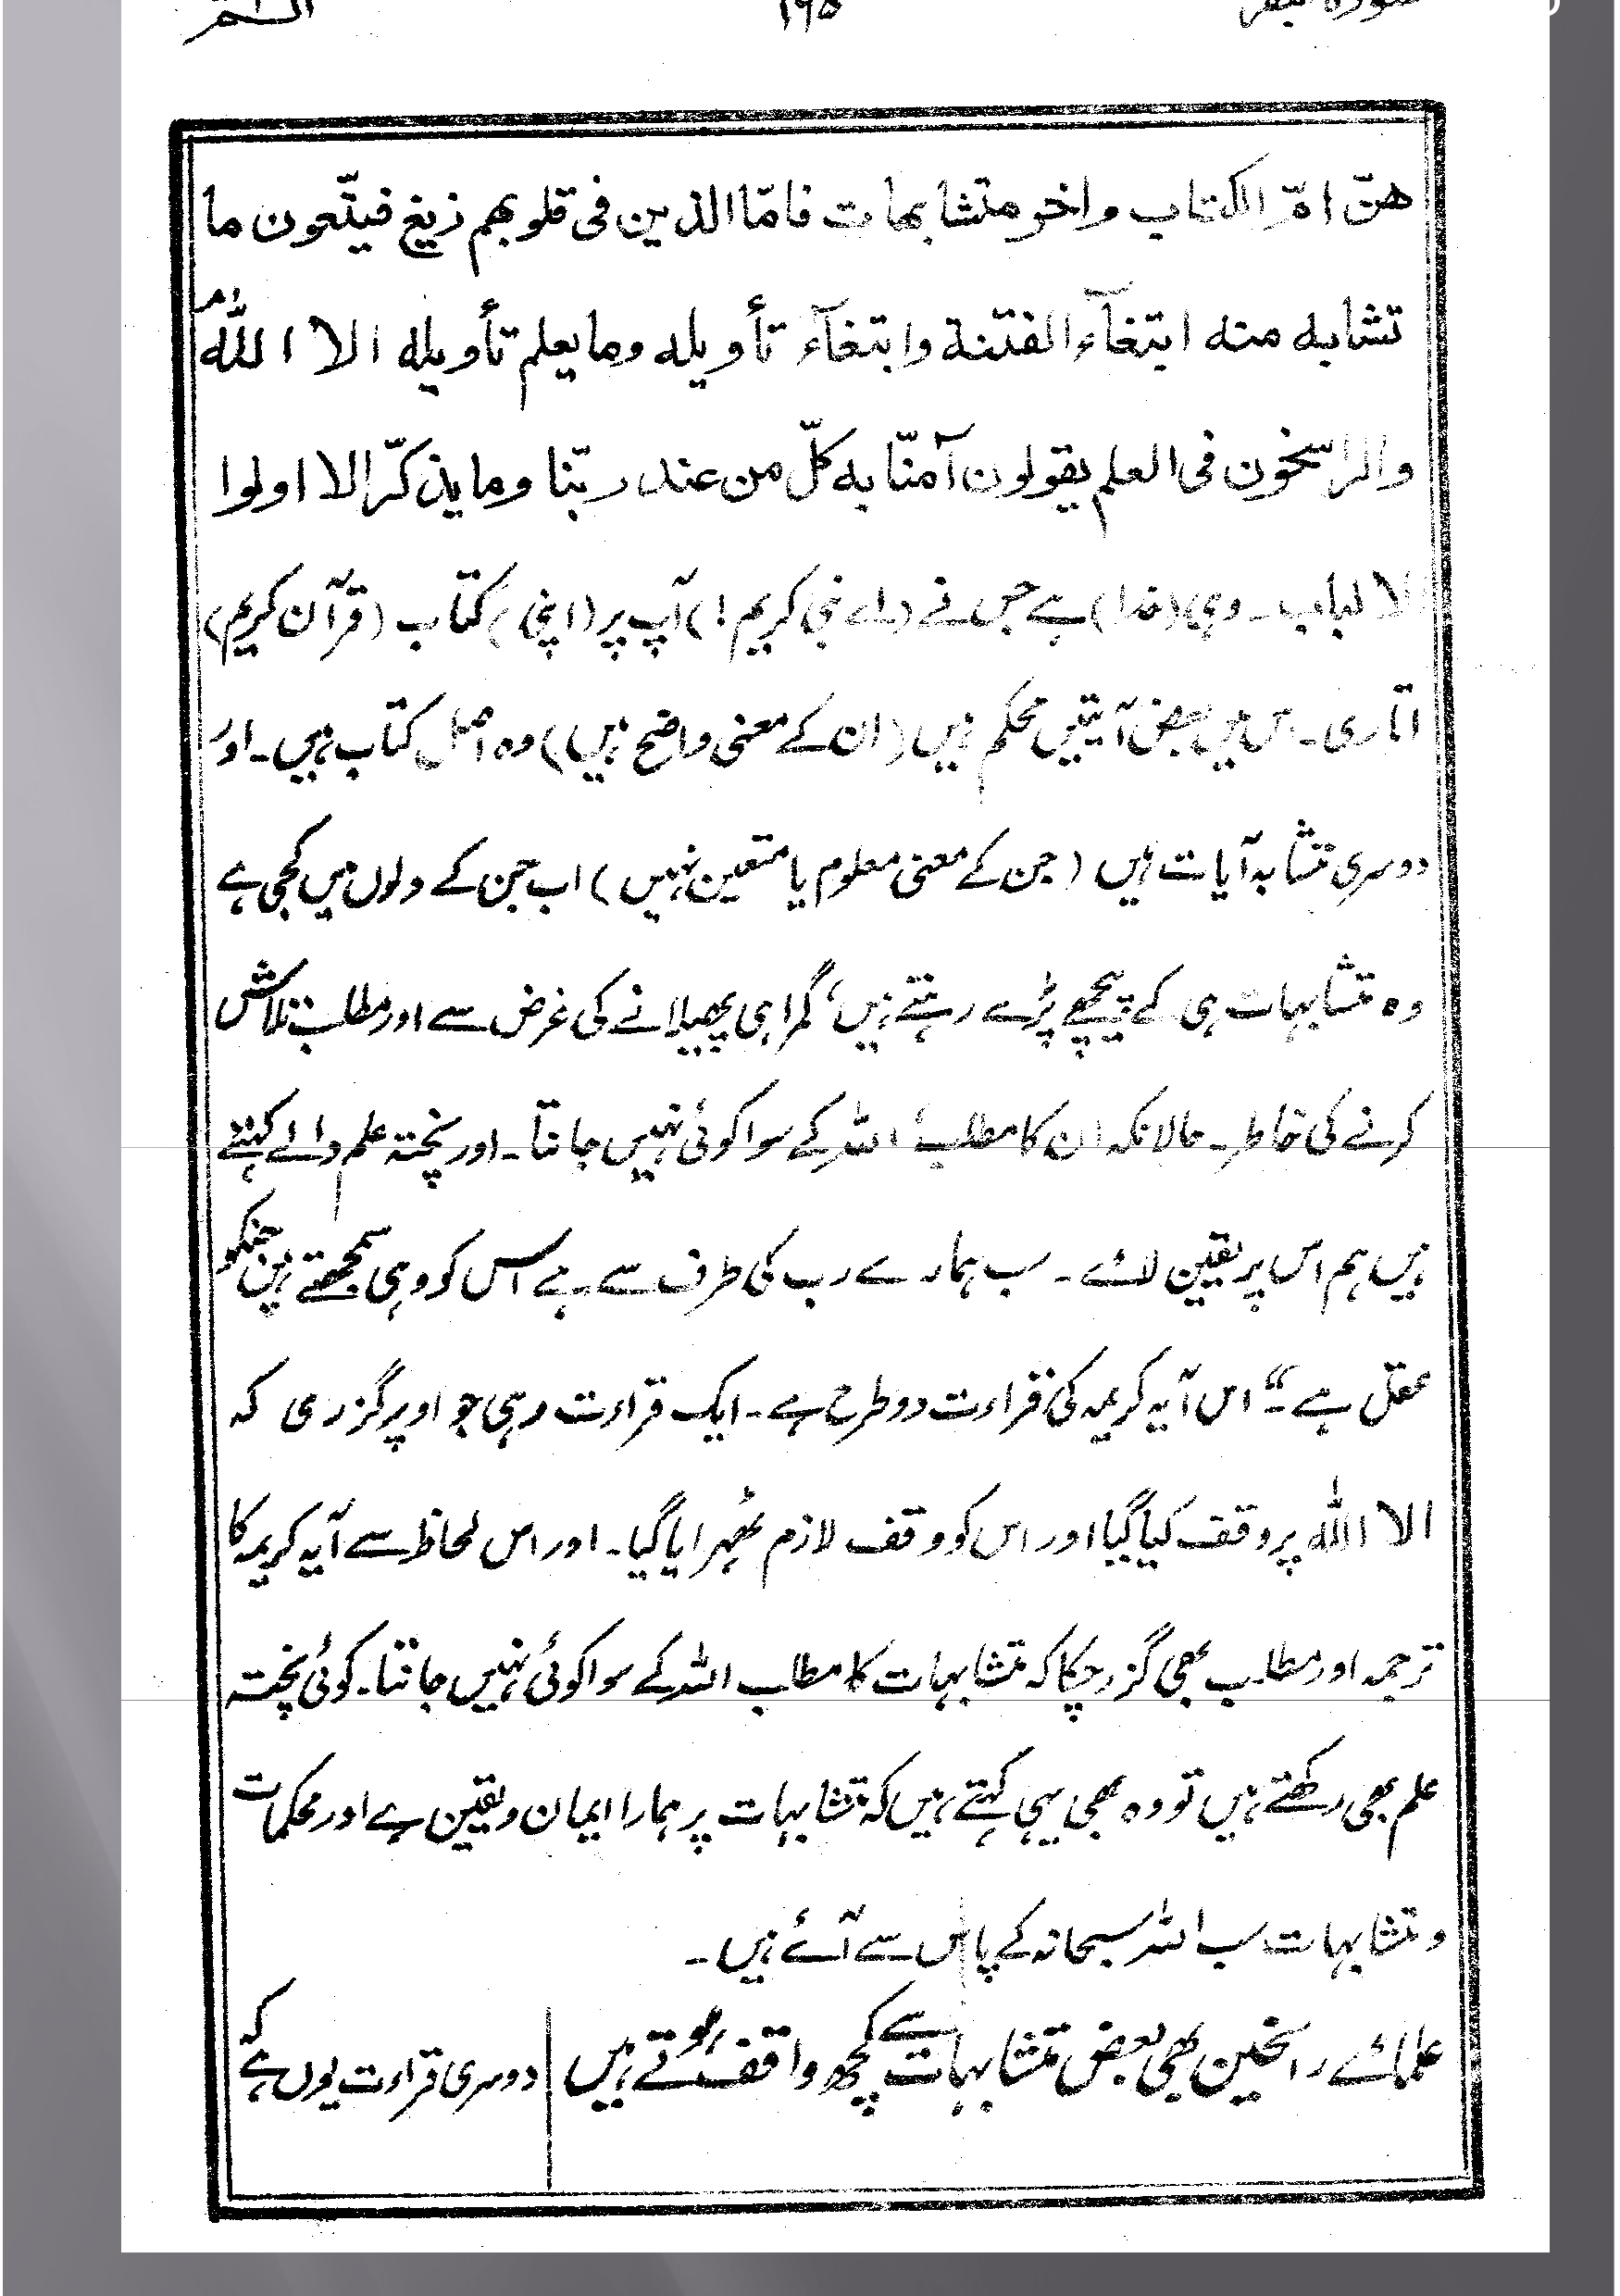 ۱۹۵
هنّ امّ الكتاب واخر متشابهات فامّا الذين فى قلوبهم زيغ فيتّبعون ما
تشابه منه ابتغآء الفتنة وابتغآء تأويله وما يعلم تأويله الا الله
والراسخون فى العلم يقولون آمنّا به كلّ من عند ربّنا وما يذكّر الا اولوا
الا لباب ۔ وہی (خدا) ہے جس نے (اے نبی کریم!) آپ پر (اپنی) کتاب (قرآن کریم)
اتاری ۔ اس میں بعض آیتیں محکم ہیں (ان کے معنی واضح ہیں) وہ اصل کتاب ہیں ۔ اور
دوسری متشابہ آیات ہیں (جن کے معنی معلوم یا متعین نہیں) اب جن کے دلوں میں کجی ہے
وہ متشابہات ہی کے پیچھے پڑے رہتے ہیں، گمراہی پھیلانے کی غرض سے اور مطلب تلاش
کرنے کی خاطر ۔ حالانکہ ان کا مطلب اللہ کے سوا کوئی نہیں جانتا ۔ اور پختہ علم والے کہتے
ہیں ہم اس پر یقین لائے ۔ سب ہمارے رب کی طرف سے ہے اس کو وہی سمجھتے ہیں جنکو
عقل ہے ۔“ اس آیہ کریمہ کی قراءت دو طرح ہے ۔ ایک قراءت وہی جو اوپر گزری کہ
الا اللہ پر وقف کیا گیا اور اس کو وقف لازم ٹھہرایا گیا ۔ اور اس لحاظ سے آیہ کریمہ کا
ترجمہ اور مطلب بھی گزر چکا کہ متشابہات کا مطلب اللہ کے سوا کوئی نہیں جانتا ۔ کوئی پختہ
علم بھی رکھتے ہیں تو وہ بھی یہی کہتے ہیں کہ متشابہات پر ہمارا ایمان و یقین ہے اور محکمات
و متشابہات سب اللہ سبحانہ کے پاس سے آئے ہیں ۔
علمائے راسخین بھی بعض متشابہات سے کچھ واقف ہوتے ہیں دوسری قراءت یوں ہے کہ